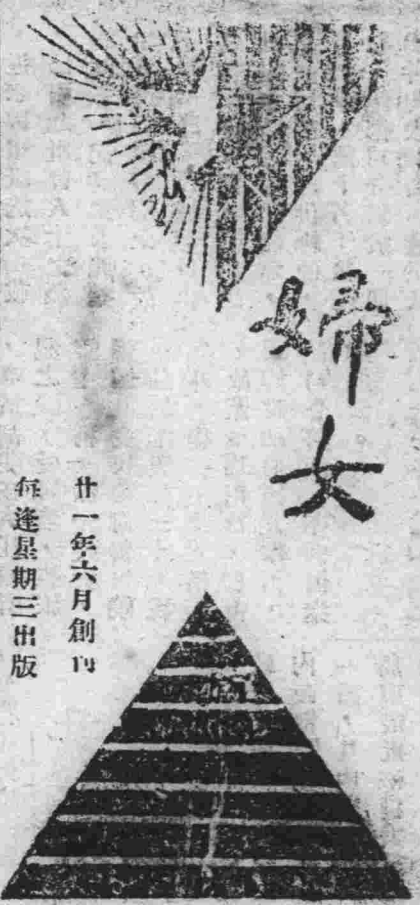 婦女
廿一年六月創刊
每逢星期三出版